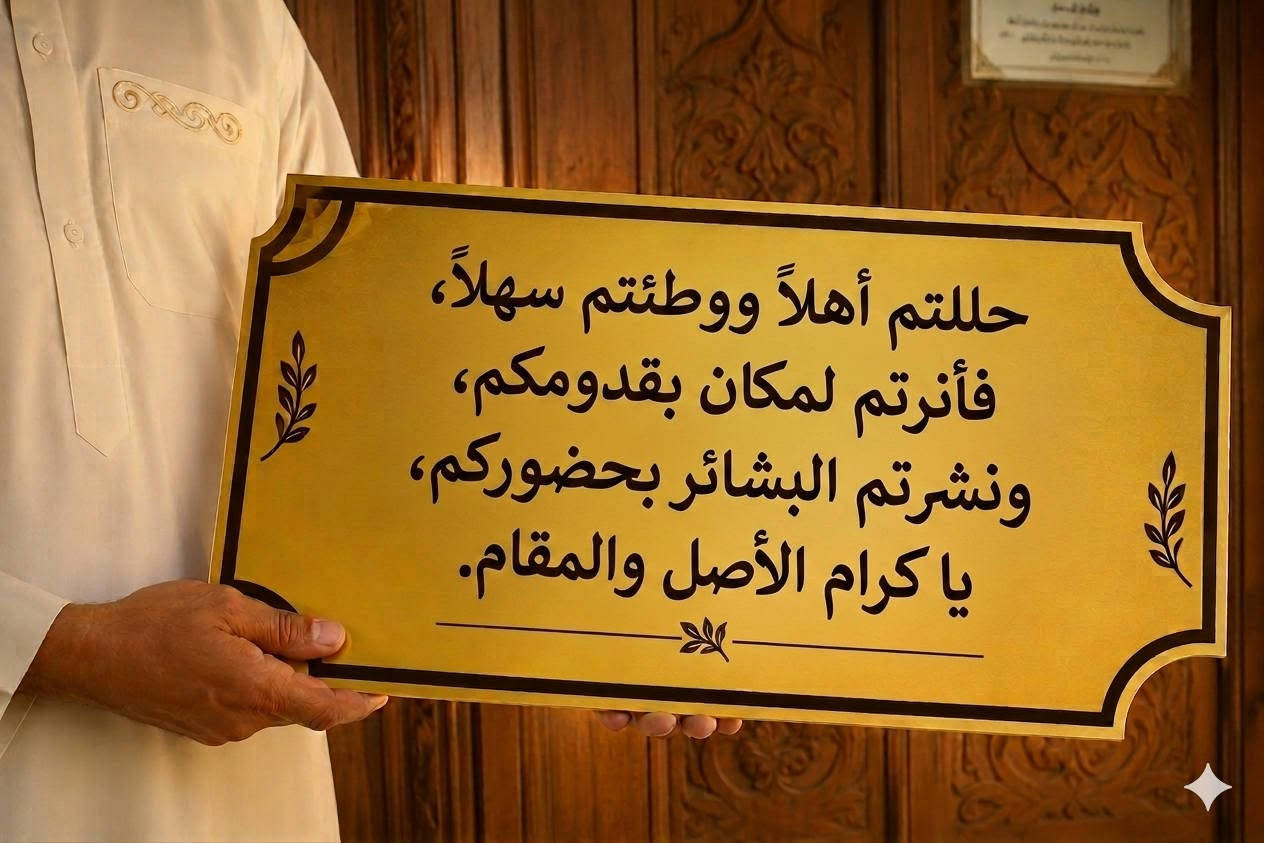 حللتم أهلاً ووطئتم سهلاً،
فأنرتم لمكان بقدومكم،
ونشرتم البشائر بحضوركم،
يا كرام الأصل والمقام.